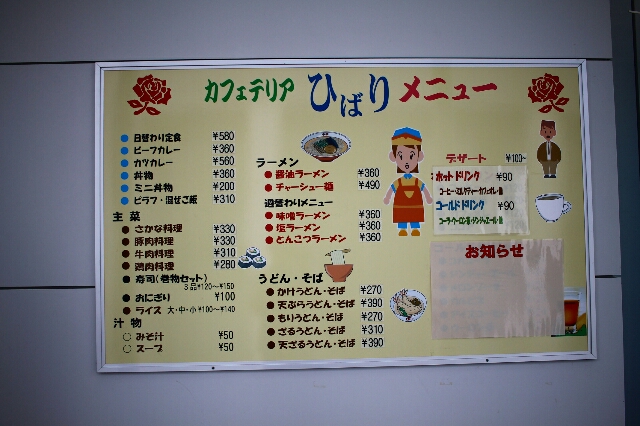 カフェテリア ひばり メニュー
日替わり定食 ¥580
ビーフカレー ¥360
カツカレー ¥560
丼物 ¥360
ミニ丼物 ¥200
ピラフ・混ぜご飯 ¥310
主菜
さかな料理 ¥330
豚肉料理 ¥330
牛肉料理 ¥310
鶏肉料理 ¥280
寿司(巻物セット)
3品¥120~¥150
おにぎり ¥100
ライス 大・中・小 ¥100~¥140
汁物
みそ汁 ¥50
スープ ¥50
ラーメン
醤油ラーメン ¥360
チャーシュー麺 ¥490
週替わりメニュー
味噌ラーメン ¥360
塩ラーメン ¥360
とんこつラーメン ¥360
うどん・そば
かけうどん・そば ¥270
天ぷらうどん・そば ¥390
もりうどん・そば ¥270
ざるうどん・そば ¥310
天ざるうどん・そば ¥390
デザート ¥100~
ホットドリンク ¥90
コールドドリンク ¥90
お知らせ